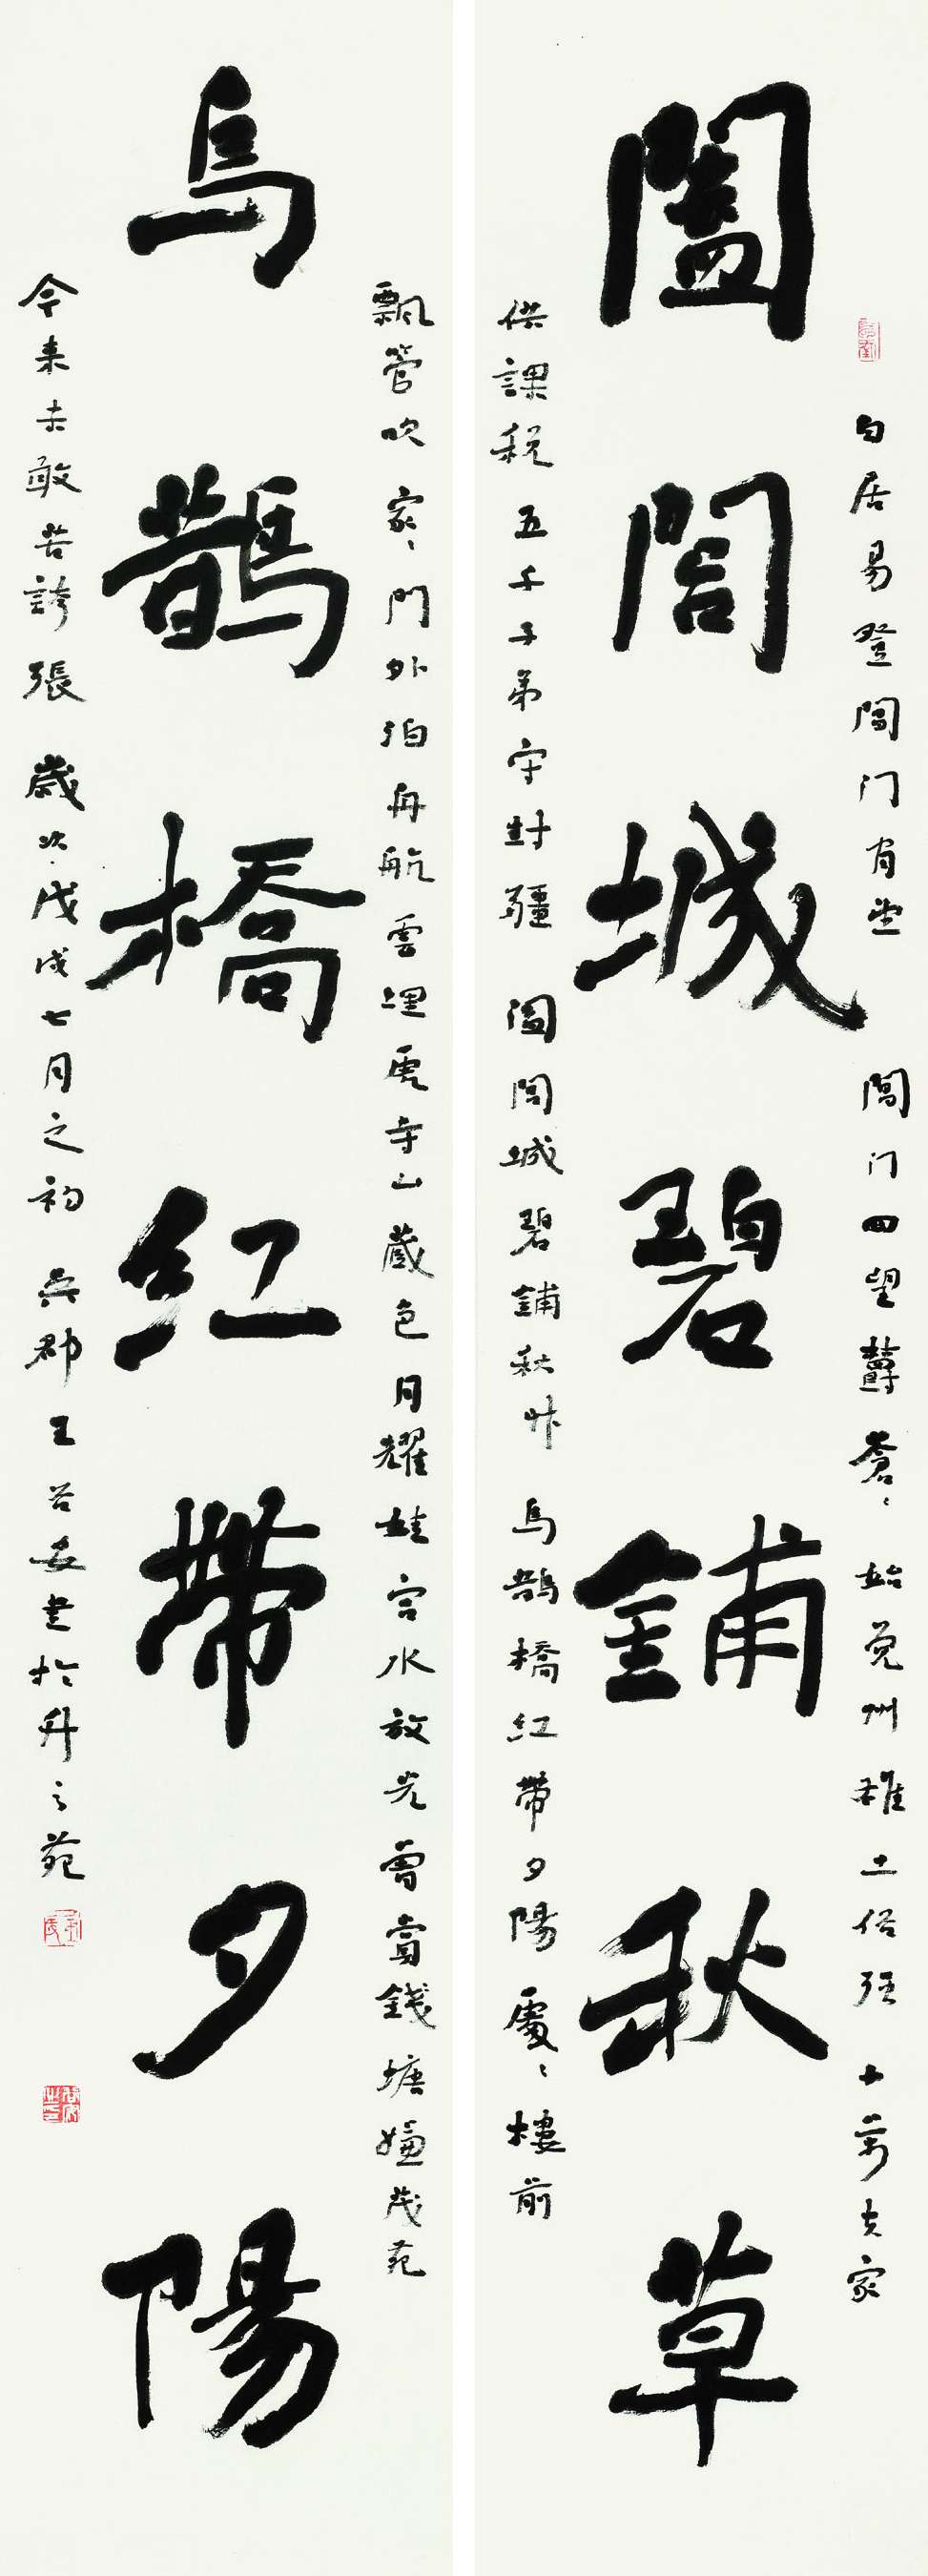 闔閭城碧鋪秋草
白居易登閶门有望 閶门四望鬱蒼〻 始覺州雄土俗强 十萬夫家
供課税 五千子弟守封疆 闔閭城碧鋪秋艸 烏鹊橋紅帶夕陽 處〻樓前
烏鵲橋红帶夕陽
飄管吹 家〻門外泊舟航 雲埋虎寺山藏色 月耀娃宫水放光 曾賞錢塘嫌茂苑
今来未敢苦誇張 歲次戊戌七月之初 吴郡王 書於升之苑